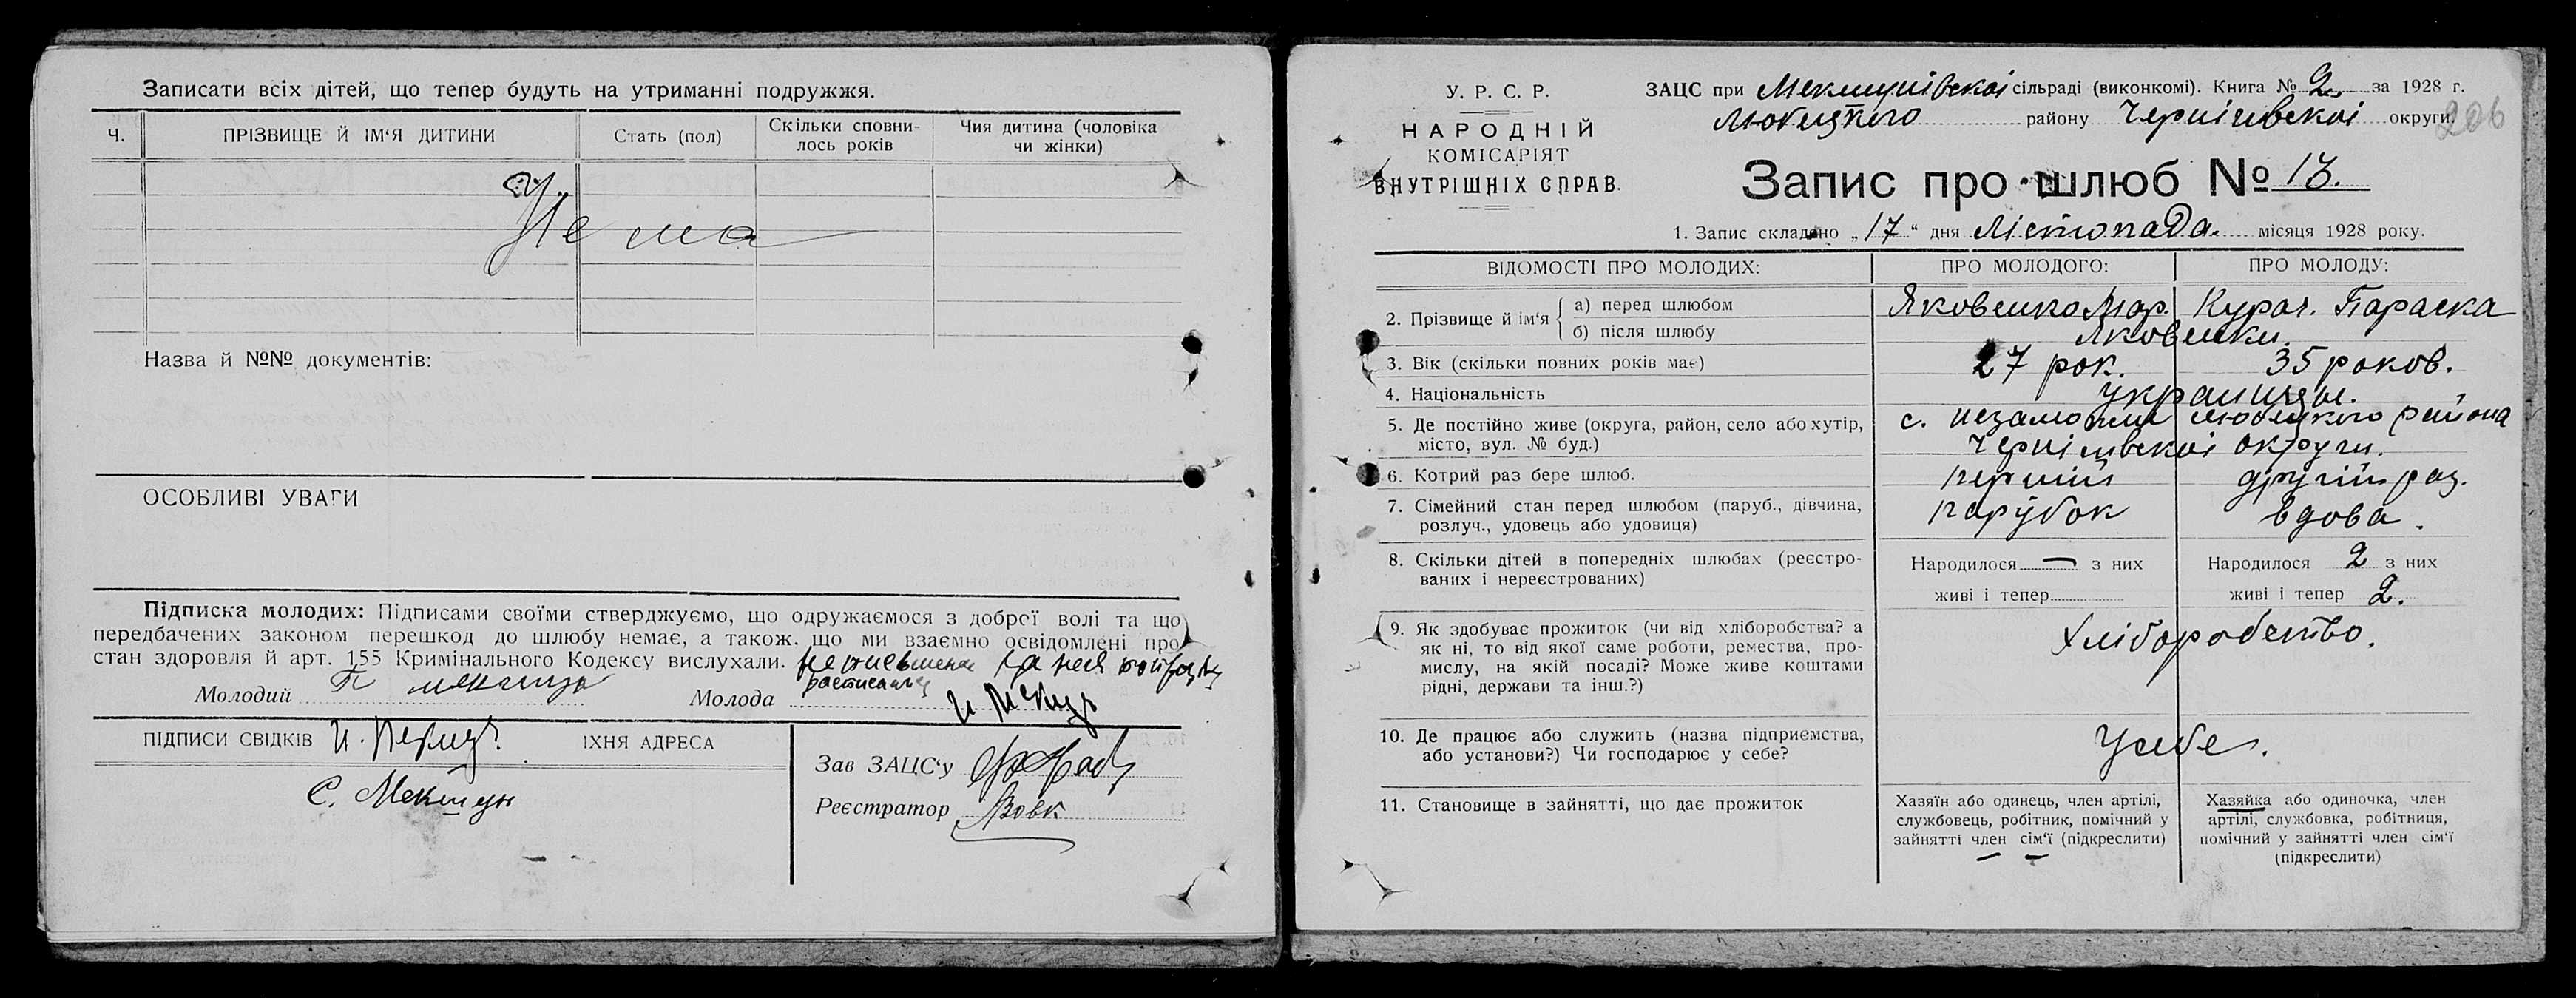 Записати всіх дітей, що тепер будуть на утриманні подружжя.
Ч. ПРІЗВИЩЕ Й ІМ'Я ДИТИНИ Стать (пол) Скільки сповни-лось років Чия дитина (чоловіка чи жінки)
Нема
Назва й №№ документів:
ОСОБЛИВІ УВАГИ
Підписка молодих: Підписами своїми стверджуємо, що одружаємося з доброї волі та що
передбачених законом перешкод до шлюбу немає, а також. що ми взаємно освідомлені про
стан здоровля й арт. 155 Кримінального Кодексу вислухали.
Молодий
Молода
ПІДПИСИ СВІДКІВ ЇХНЯ АДРЕСА
С. Мекшун
Зав ЗАЦС'у
Реєстратор Вовк
У. Р. С. Р.
НАРОДНІЙ
КОМІСАРІЯТ
ВНУТРІШНІХ СПРАВ.
ЗАЦС при Мекшунівскоі сільраді (виконкомі). Книга № 2 за 1928 г.
Любецкого району Чернігівскоі округи
206
Запис про шлюб № 13.
1. Запис складено „17" дня Лістопада. місяця 1928 року.
ВІДОМОСТІ ПРО МОЛОДИХ: ПРО МОЛОДОГО: ПРО МОЛОДУ:
2. Прізвище й ім'я { а) перед шлюбом Яковенко Мар. Параска
б) після шлюбу Яковенки.
3. Вік (скільки повних років має) 27 рок. 35 роков.
4. Національність украинцы.
5. Де постійно живе (округа, район, село або хутір, с. Незаможне Любецкого района
місто, вул. № буд.) Чернігівскоі округи.
6. Котрий раз бере шлюб. перший другій раз.
7. Сімейний стан перед шлюбом (паруб., дівчина, парубок вдова.
розлуч., удовець або удовиця)
8. Скільки дітей в попередніх шлюбах (реєстро- Народилося — з них Народилося 2 з них
ваних і нереєстрованих) живі і тепер живі і тепер 2.
9. Як здобуває прожиток (чи від хліборобства? а Хліборобство.
як ні, то від якої саме роботи, ремества, про-
мислу, на якій посаді? Може живе коштами
рідні, держави та інш.?)
10. Де працює або служить (назва підприємства, У себе.
або установи?) Чи господарює у себе?
11. Становище в зайнятті, що дає прожиток
Хазяїн або одинець, член артілі,
службовець, робітник, помічний у
зайнятті член сім'ї (підкреслити)
Хазяйка або одиночка, член
артілі, службовка, робітниця,
помічний у зайнятті член сім'ї
(підкреслити)